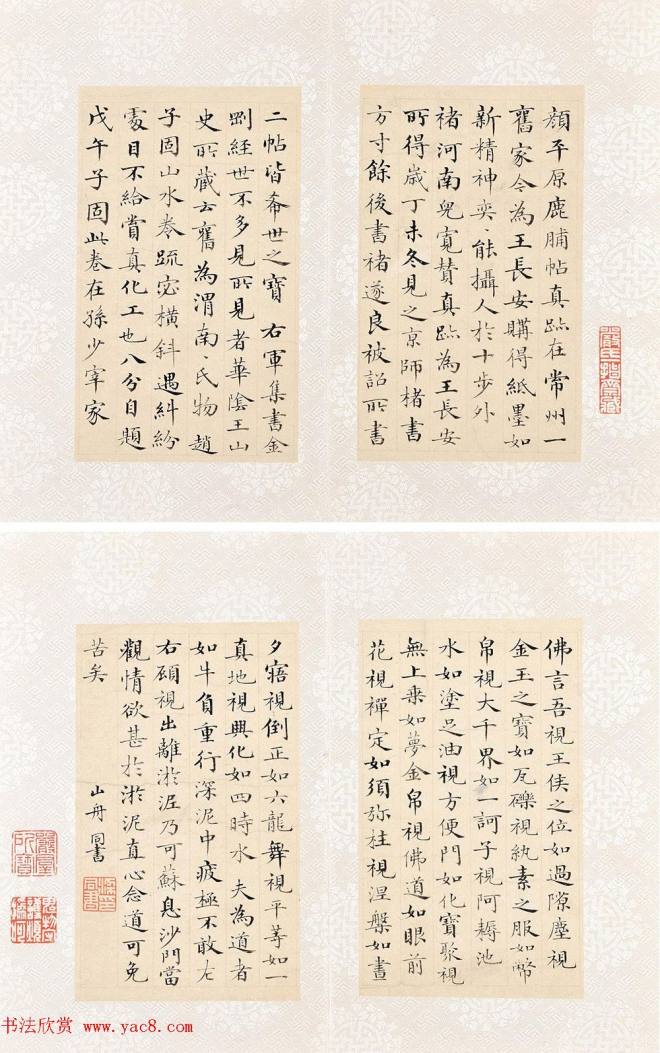 顔平原鹿脯帖真跡在常州一
舊家今為王長安購得紙墨如
新精神奕〻能攝人於十步外
褚河南兒寬贊真跡為王長安
所得歲丁未冬見之京師楮書
方寸餘後書褚遂良被詔所書
二帖皆希世之寶 右軍集書金
剛經世不多見所見者華陰王山
史所藏云舊為渭南〻氏物趙
子固山水卷疏宓橫斜遇糾紛
處目不給賞真化工也八分自題
戊午子固此卷在孫少宰家
佛言吾視王侯之位如過隙塵視
金玉之寶如瓦礫視紈素之服如幣
帛視大千界如一訶子視阿耨池
水如塗足油視方便門如化寶聚視
無上乘如夢金帛視佛道如眼前
花視禪定如須弥柱視涅槃如晝
夕寤視倒正如六龍舞視平等如一
真地視興化如四時水 夫為道者
如牛負重行深泥中疲極不敢左
右顧視出離淤泥乃可蘇息沙門當
觀情欲甚於淤泥直心念道可免
苦矣
山舟同書
书法欣赏 www.yac8.com